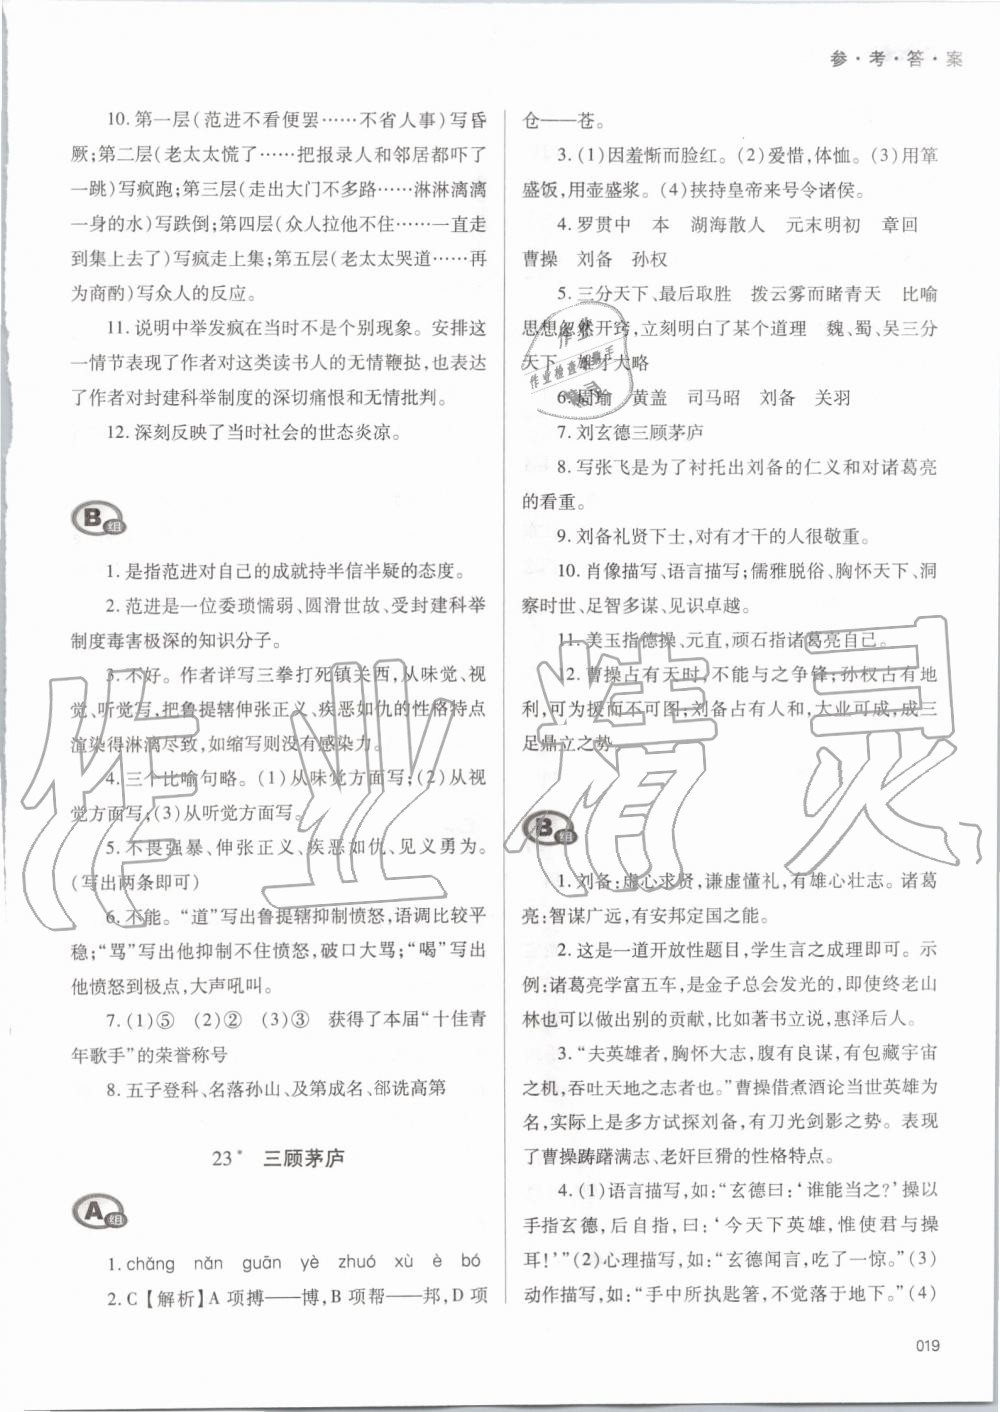 参·考·答·案
10. 第一层(范进不看便罢……不省人事)写昏
厥;第二层(老太太慌了……把报录人和邻居都吓了
一跳)写疯跑;第三层(走出大门不多路……淋淋漓漓
一身的水)写跌倒;第四层(众人拉他不住……一直走
到集上去了)写疯走上集;第五层(老太太哭道……再
为商酌)写众人的反应。
11. 说明中举发疯在当时不是个别现象。安排这
一情节表现了作者对这类读书人的无情鞭挞,也表达
了作者对封建科举制度的深切痛恨和无情批判。
12. 深刻反映了当时社会的世态炎凉。
B组
1. 是指范进对自己的成就持半信半疑的态度。
2. 范进是一位委琐懦弱、圆滑世故、受封建科举
制度毒害极深的知识分子。
3. 不好。作者详写三拳打死镇关西,从味觉、视
觉、听觉写,把鲁提辖伸张正义、疾恶如仇的性格特点
渲染得淋漓尽致,如缩写则没有感染力。
4. 三个比喻句略。(1)从味觉方面写;(2)从视
觉方面写;(3)从听觉方面写。
5. 不畏强暴、伸张正义、疾恶如仇、见义勇为。
(写出两条即可)
6. 不能。“道”写出鲁提辖抑制愤怒,语调比较平
稳;“骂”写出他抑制不住愤怒,破口大骂;“喝”写出
他愤怒到极点,大声吼叫。
7. (1)⑤ (2)② (3)③ 获得了本届“十佳青
年歌手”的荣誉称号
8. 五子登科、名落孙山、及第成名、郤诜高第
23* 三顾茅庐
A组
1. chǎng nǎn guān yè zhuó xù è bó
2. C【解析】A项搏——博,B项帮——邦,D项
仓——苍。
3. (1)因羞惭而脸红。(2)爱惜,体恤。(3)用箪
盛饭,用壶盛浆。(4)挟持皇帝来号令诸侯。
4. 罗贯中 本 湖海散人 元末明初 章回
曹操 刘备 孙权
5. 三分天下、最后取胜 拨云雾而睹青天 比喻
思想忽然开窍,立刻明白了某个道理 魏、蜀、吴三分
天下 雄才大略
6. 周瑜 黄盖 司马昭 刘备 关羽
7. 刘玄德三顾茅庐
8. 写张飞是为了衬托出刘备的仁义和对诸葛亮
的看重。
9. 刘备礼贤下士,对有才干的人很敬重。
10. 肖像描写、语言描写;儒雅脱俗、胸怀天下、洞
察时世、足智多谋、见识卓越。
11. 美玉指德操、元直,顽石指诸葛亮自己。
12. 曹操占有天时,不能与之争锋;孙权占有地
利,可为援而不可图;刘备占有人和,大业可成,成三
足鼎立之势。
B组
1. 刘备:虚心求贤,谦虚懂礼,有雄心壮志。诸葛
亮:智谋广远,有安邦定国之能。
2. 这是一道开放性题目,学生言之成理即可。示
例:诸葛亮学富五车,是金子总会发光的,即使终老山
林也可以做出别的贡献,比如著书立说,惠泽后人。
3. “夫英雄者,胸怀大志,腹有良谋,有包藏宇宙
之机,吞吐天地之志者也。”曹操借煮酒论当世英雄为
名,实际上是多方试探刘备,有刀光剑影之势。表现
了曹操踌躇满志、老奸巨猾的性格特点。
4. (1)语言描写,如:“玄德曰:‘谁能当之?’操以
手指玄德,后自指,曰:‘今天下英雄,惟使君与操
耳!’”(2)心理描写,如:“玄德闻言,吃了一惊。”(3)
动作描写,如:“手中所执匙箸,不觉落于地下。”(4)
019
作业精灵